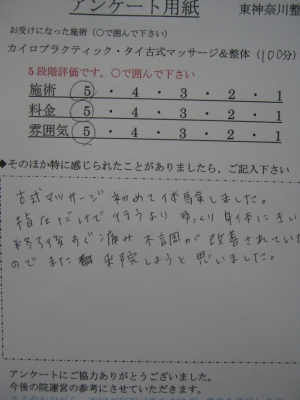 アンケート用紙
東神奈川整
お受けになった施術（○で囲んで下さい）
カイロプラクティック・タイ古式マッサージ&整体（100分）
5段階評価です。○で囲んで下さい
施術 5・4・3・2・1
料金 5・4・3・2・1
雰囲気 5・4・3・2・1
◆そのほか特に感じられたことがありましたら、ご記入下さい
古式マッサージ初めて体験しました。
指圧だけで行うより ゆっくり身体に
終了後すぐ痛み不調が改善されてい
のでまた来院しようと思いました。
アンケートにご協力ありがとうございました。
今後の院運営の参考にさせていただきます。